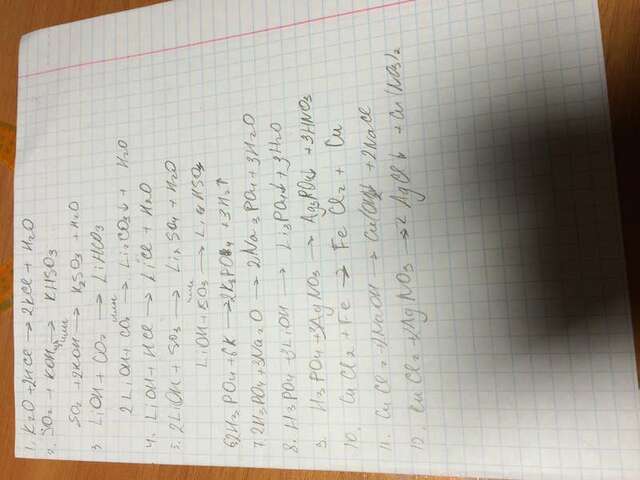 1. K2O + 2HCl → 2KCl + H2O
2. SO2 + KOH → KHSO3
или
SO2 + 2KOH → K2SO3 + H2O
3. LiOH + CO2 → LiHCO3
или
2LiOH + CO2 → Li2CO3↓ + H2O
4. LiOH + HCl → LiCl + H2O
5. 2LiOH + SO3 → Li2SO4 + H2O
или
LiOH + SO3 → LiHSO4
6. 2H3PO4 + 6K → 2K3PO4 + 3H2↑
7. 2H3PO4 + 3Na2O → 2Na3PO4 + 3H2O
8. H3PO4 + 3LiOH → Li3PO4↓ + 3H2O
9. H3PO4 + 3AgNO3 → Ag3PO4↓ + 3HNO3
10. CuCl2 + Fe → FeCl2 + Cu
11. CuCl2 + 2NaOH → Cu(OH)2↓ + 2NaCl
12. CuCl2 + 2AgNO3 → 2AgCl↓ + Cu(NO3)2